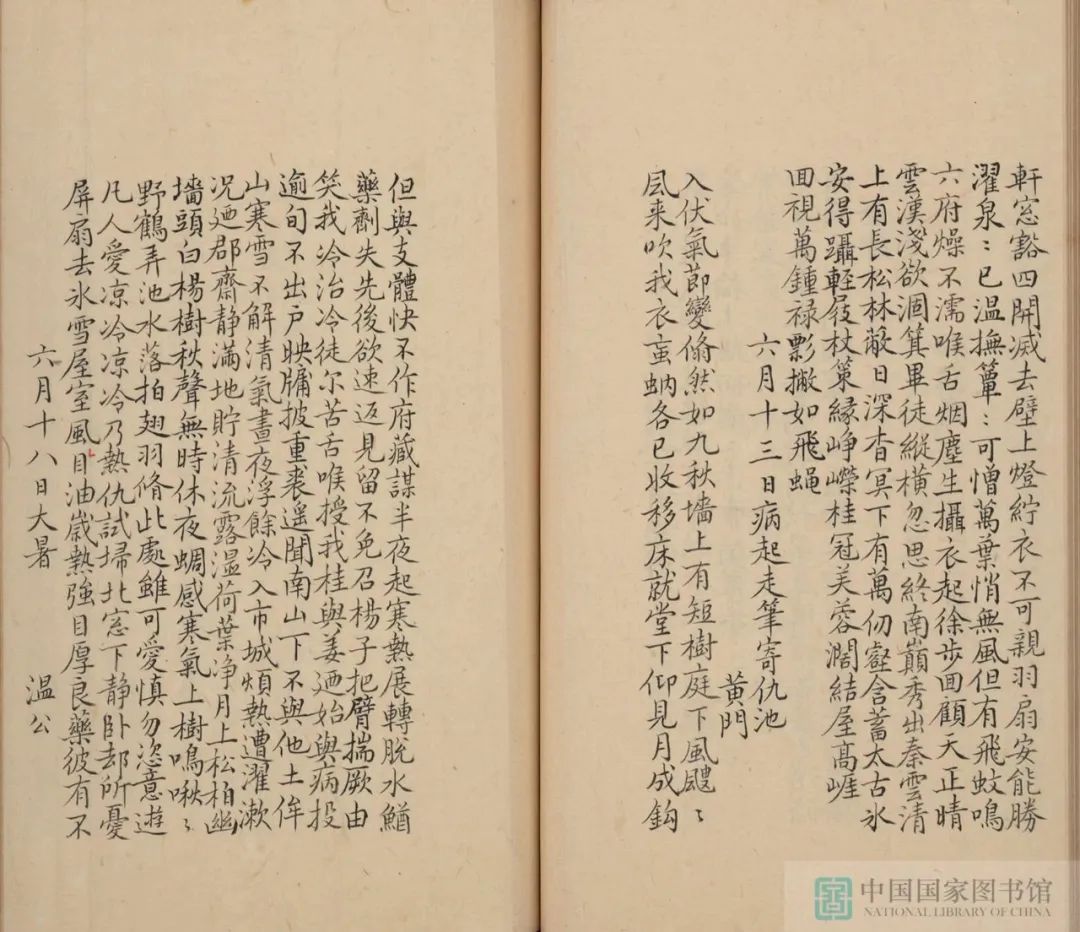 軒窓豁四開滅去壁上燈紵衣不可親羽扇安能勝
濯泉〻已温撫簟〻可憎萬葉悄無風但有飛蚊鳴
六府燥不濡喉舌烟塵生攝衣起徐步回顧天正晴
雲漢淺欲涸箕畢徒縱橫忽思終南巔秀出秦雲清
上有長松林蔽日深杳冥下有萬仞壑含蓄太古氷
安得躡輕屐杖策緣崢嶸桂冠芙蓉濶結屋高崕
回視萬鍾禄飄撇如飛蝇
六月十三日病起走筆寄仇池
黄門
入伏氣節變翛然如九秋墻上有短樹庭下風颼〻
凨来吹我衣䖟蚋各已收移床就堂下仰見月成鈎
但與支體快不作府藏謀半夜起寒熱展轉脫水鰌
藥劑失先後欲速返見留不免召楊子把臂揣厥由
笑我冷治冷徒尔苦舌喉授我桂與姜廼始與病投
逾旬不出戶映牖披重裘遥聞南山下不與他土侔
山寒雪不解清氣晝夜浮餘冷入市城煩熱遭濯漱
况廼郡齋静滿地貯清流露溼荷葉净月上松柏幽
墻頭白楊樹秋聲無時休夜蜩感寒氣上樹鳴啾〻
野鶴弄池水落拍翅羽脩此處雖可愛慎勿恣意遊
凡人愛凉冷凉冷乃熱仇試掃北窓下静卧却所憂
屏扇去氷雪屋室風目油歳熱強目厚良藥彼有不
六月十八日大暑
温公
中国国家图书馆
NATIONAL LIBRARY OF CHINA